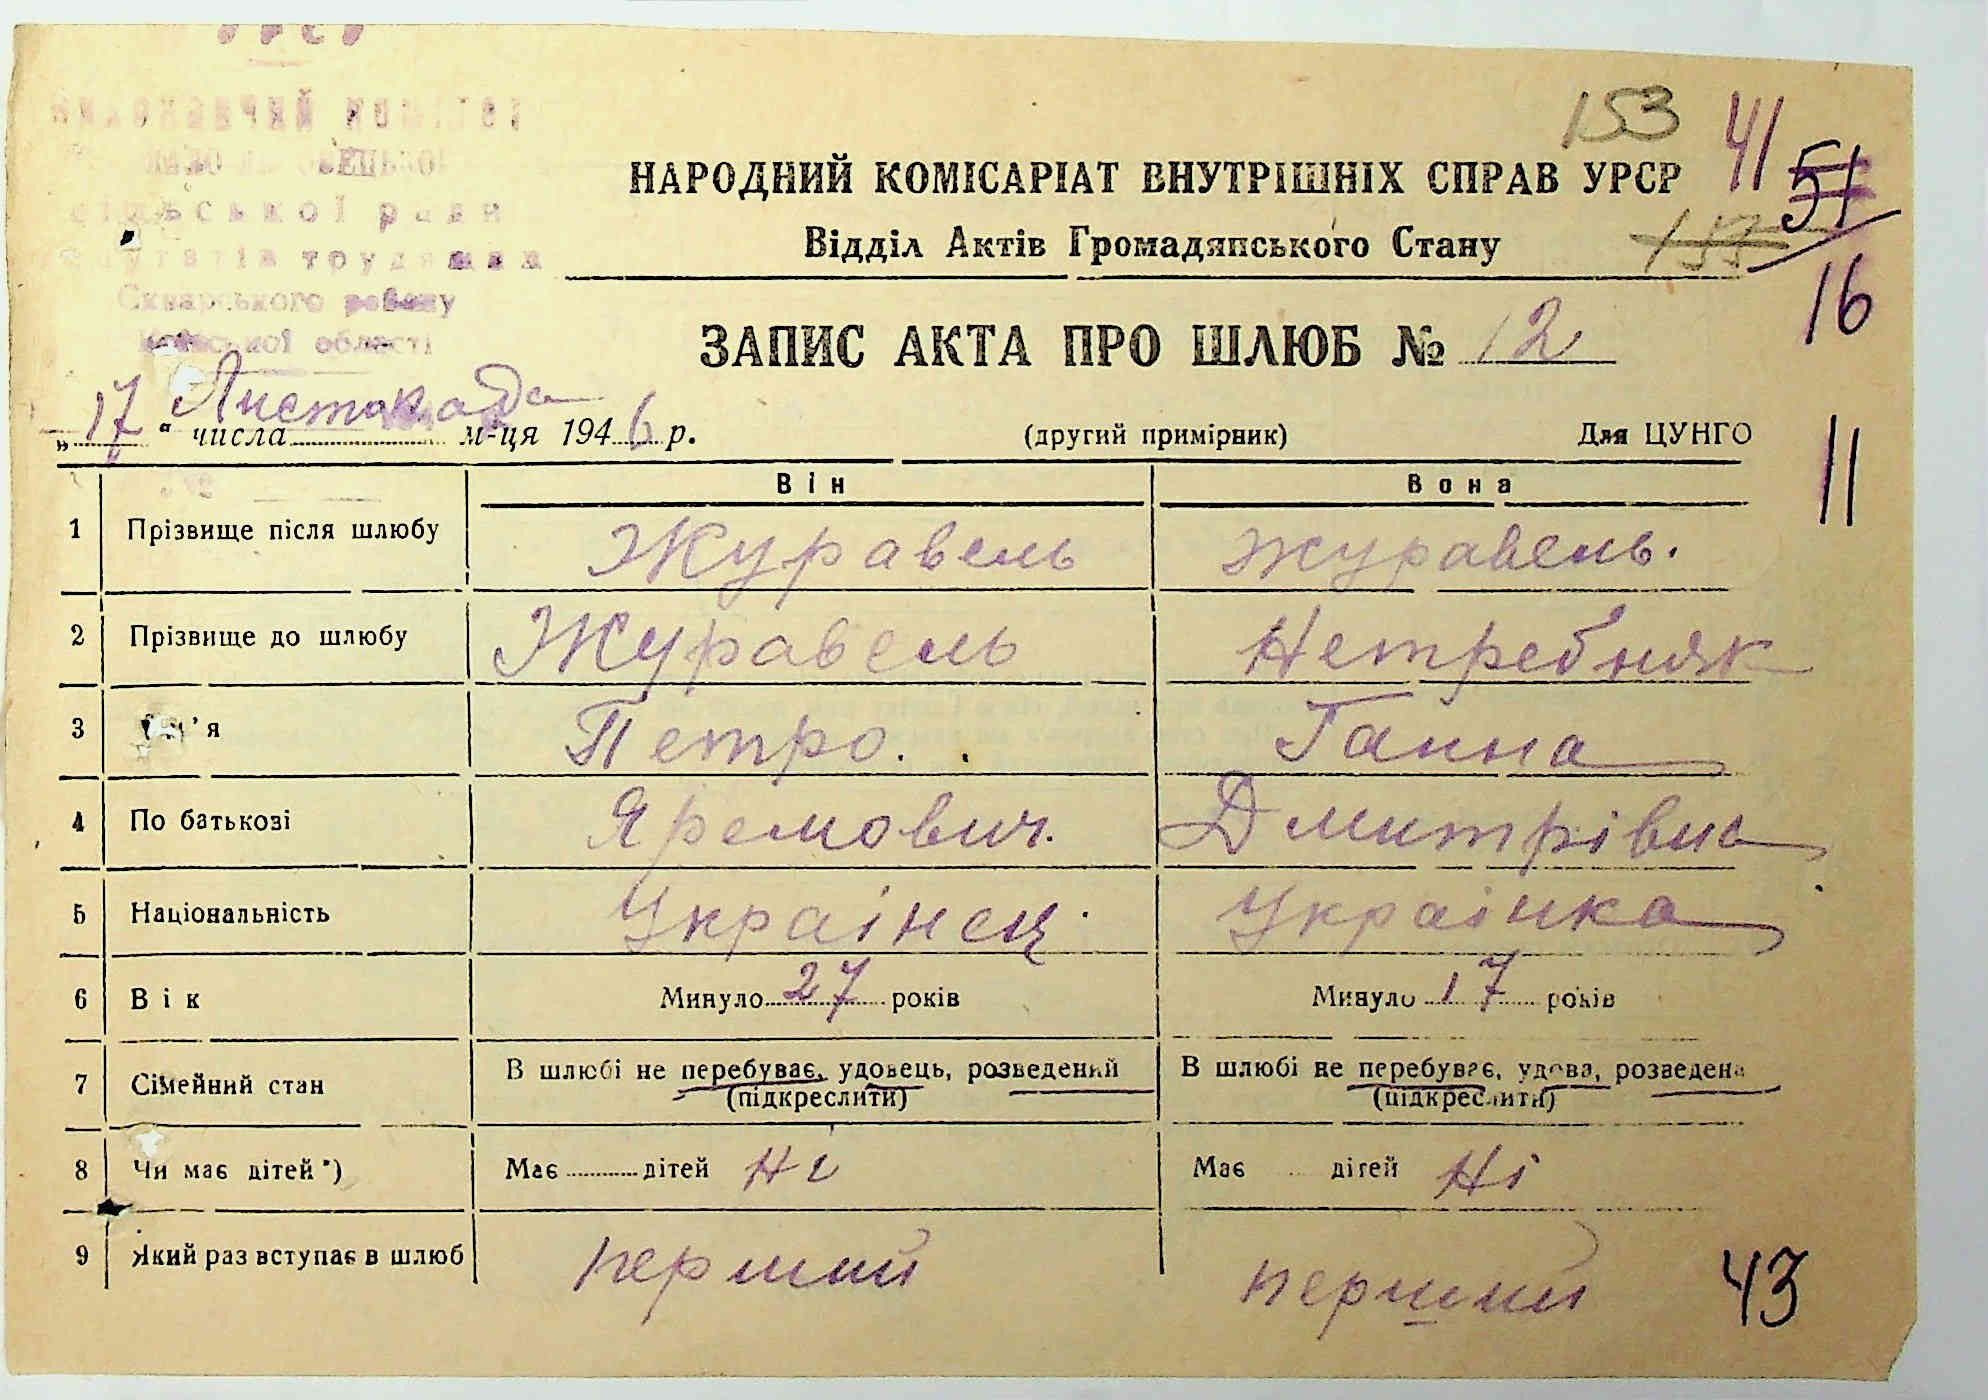 УРСР
ВИКОНАВЧИЙ КОМІТЕТ
сільської ради
депутатів трудящих
Сквирського району
Київської області
153
41
51
НАРОДНИЙ КОМІСАРІАТ ВНУТРІШНІХ СПРАВ УРСР
Відділ Актів Громадянського Стану
16
ЗАПИС АКТА ПРО ШЛЮБ № 12
„17“ числа Листопада м-ця 1946 р.
(другий примірник)
Для ЦУНГО
11
Він Вона
1 Прізвище після шлюбу Журавель Журавель.
2 Прізвище до шлюбу Журавель Нетребняк
3 Ім'я Петро. Ганна
4 По батькові Яремович. Дмитрівна
5 Національність Украінец. Украінка
6 Вік Минуло 27 років Минуло 17 років
7 Сімейний стан В шлюбі не перебуває, удовець, розведений (підкреслити) В шлюбі не перебуває, удова, розведена (підкреслити)
8 Чи має дітей*) Має дітей Ні Має дітей Ні
9 Який раз вступає в шлюб перший перший
43